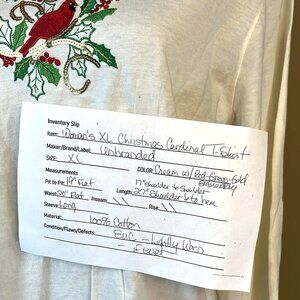 Inventory Slip
Item: Woman's XL Christmas Cardinal T-Shirt
Maker/Brand/Label: Unbranded
SIZE: XL COLOR: Cream w/ Red-Green-Gold
Embroidery
Measurements 17" Shoulder to Shoulder
Pit to Pit: 19" Flat Length: 27" Shoulder to hem
Waist: 20" Flat Inseam: Rise:
Sleeve: Long
Material: 100% Cotton
Condition/Flaws/Defects: EUC - Lightly Worn
if ever